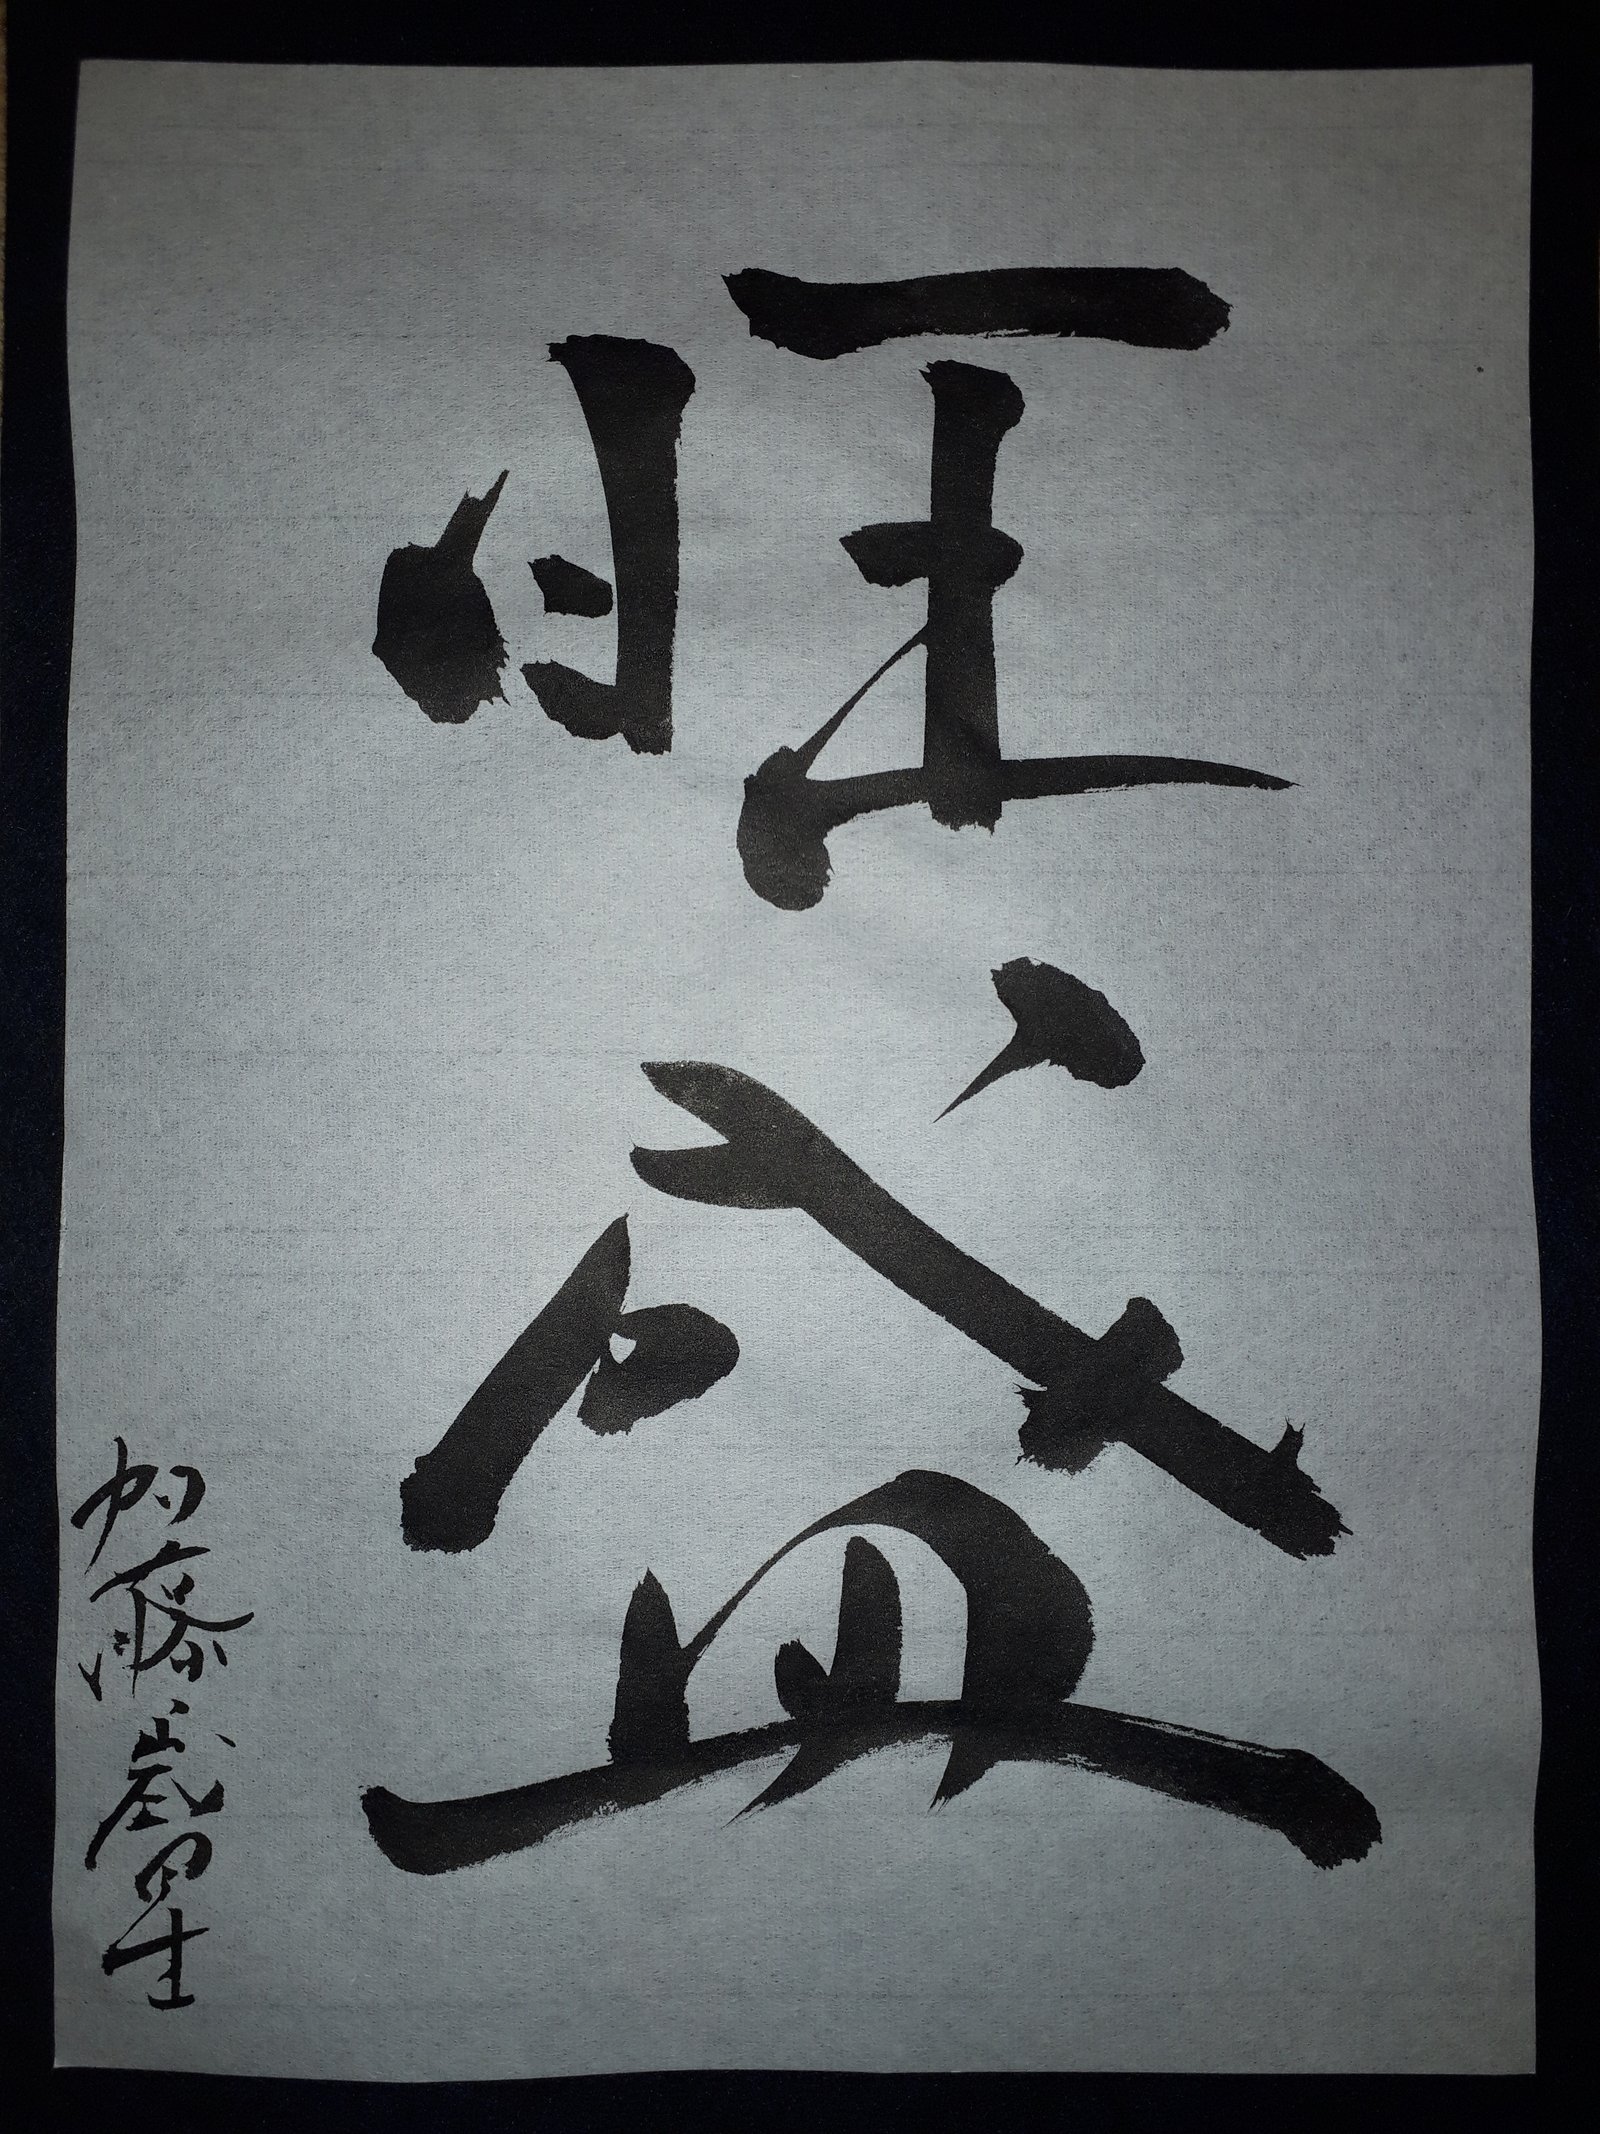 旺盛
加藤歳星